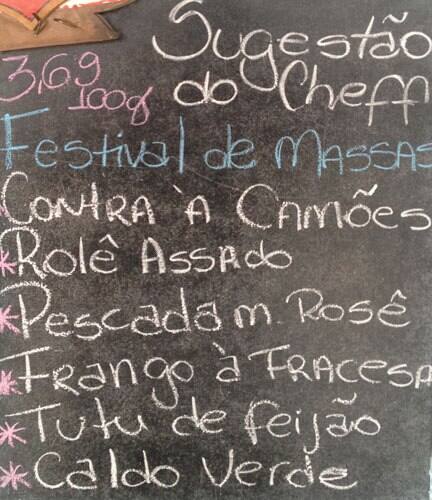 Sugestão
3,69 do Cheff
100g
Festival de MASSAS
CONTRA À CAMÕES
*Rolê ASSADO
*Pescada m. Rosê
*FRANGO à FRACESA
*Tutu de feijão
*Caldo Verde